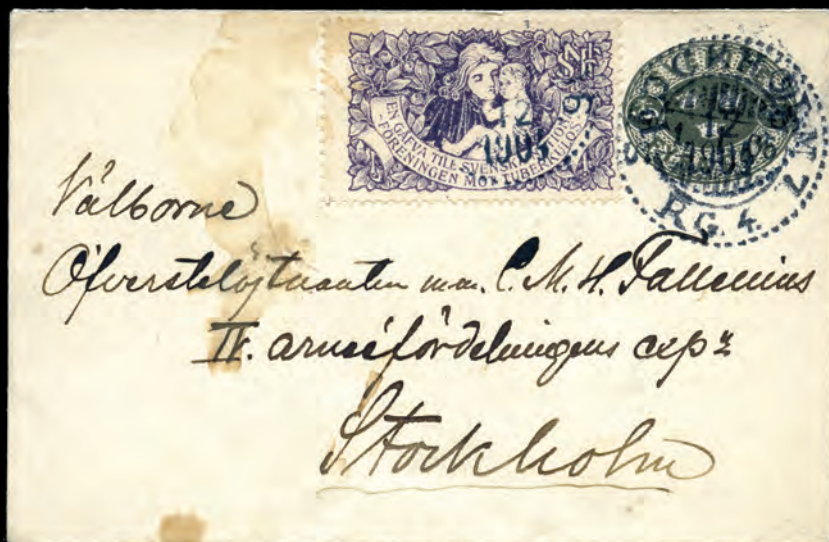 EN GÅFVA TILL SVENSKA NATIONAL-
FÖRENINGEN MOT TUBERKULOS
SNFT
12
1904
RG. 4.
Välborne
Öfverstelöjtnanten m.m. C. M. H. Fallenius
IV. arméfördelningens exp:
Stockholm